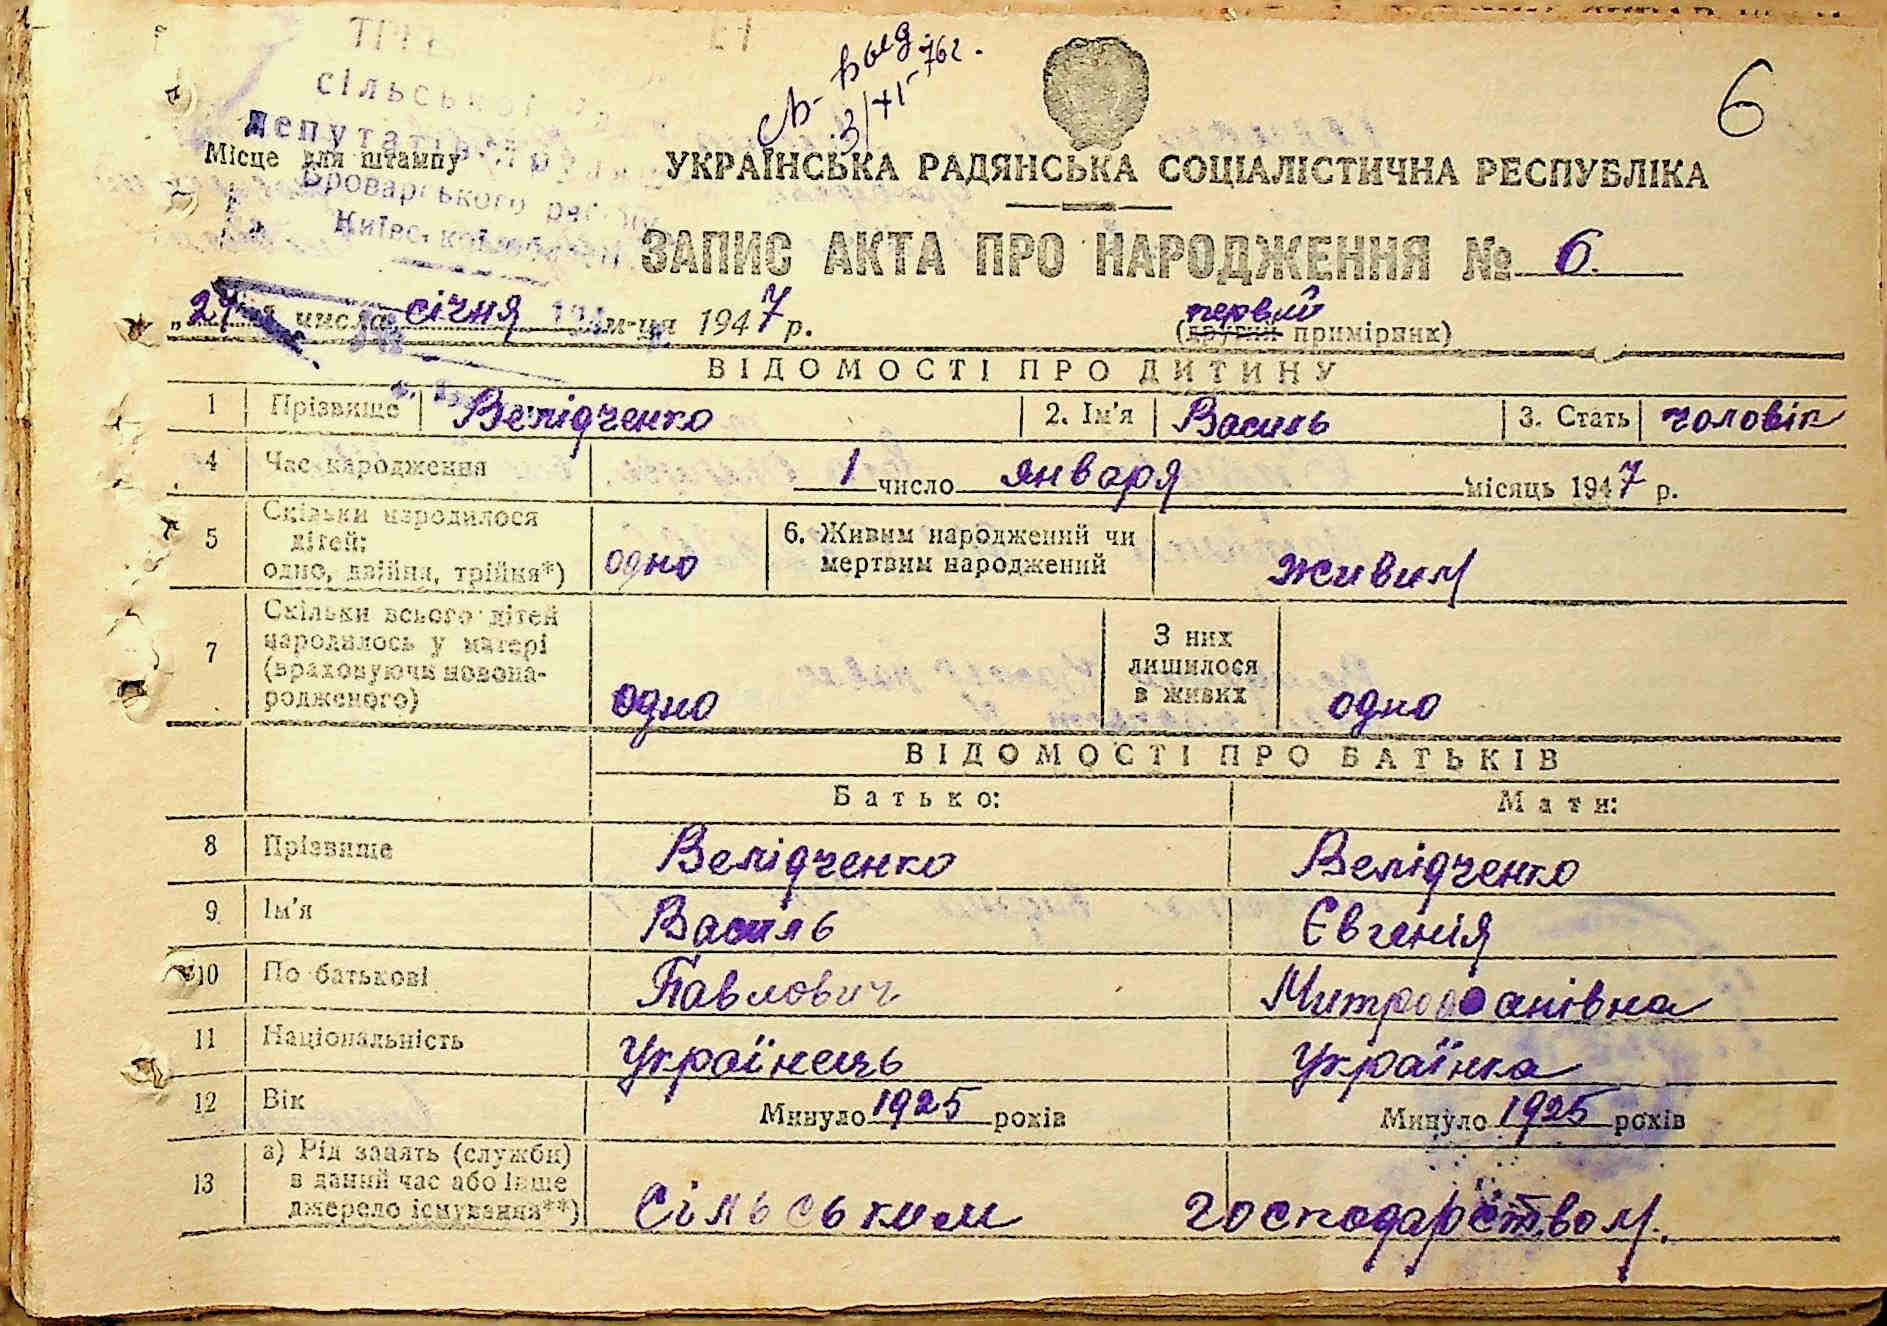 6
св-
3/XI-
762.
сільської
депутатів
Місце для штампу
Броварського району
Київської
УКРАЇНСЬКА РАДЯНСЬКА СОЦІАЛІСТИЧНА РЕСПУБЛІКА
ЗАПИС АКТА ПРО НАРОДЖЕННЯ № 6.
числа січня м-ця 1947 р.
первий
(другий примірник)
ВІДОМОСТІ ПРО ДИТИНУ
1 Прізвище Велідченко 2. Ім'я Василь 3. Стать чоловік
4 Час народження 1 число января місяць 1947 р.
5 Скільки народилося дітей: одно, двійня, трійня*) одно 6. Живим народжений чи мертвим народжений живим
7 Скільки всього дітей народилось у матері (враховуючи новонародженого) одно З них лишилося в живих одно
ВІДОМОСТІ ПРО БАТЬКІВ
Батько: Мати:
8 Прізвище Велідченко Велідченко
9 Ім'я Василь Євгенія
10 По батькові Павлович
11 Національність Українець Українка
12 Вік Минуло 1925 років Минуло 1925 років
13 а) Рід занять (служби) в даний час або інше джерело існування**) Сільським господарством.